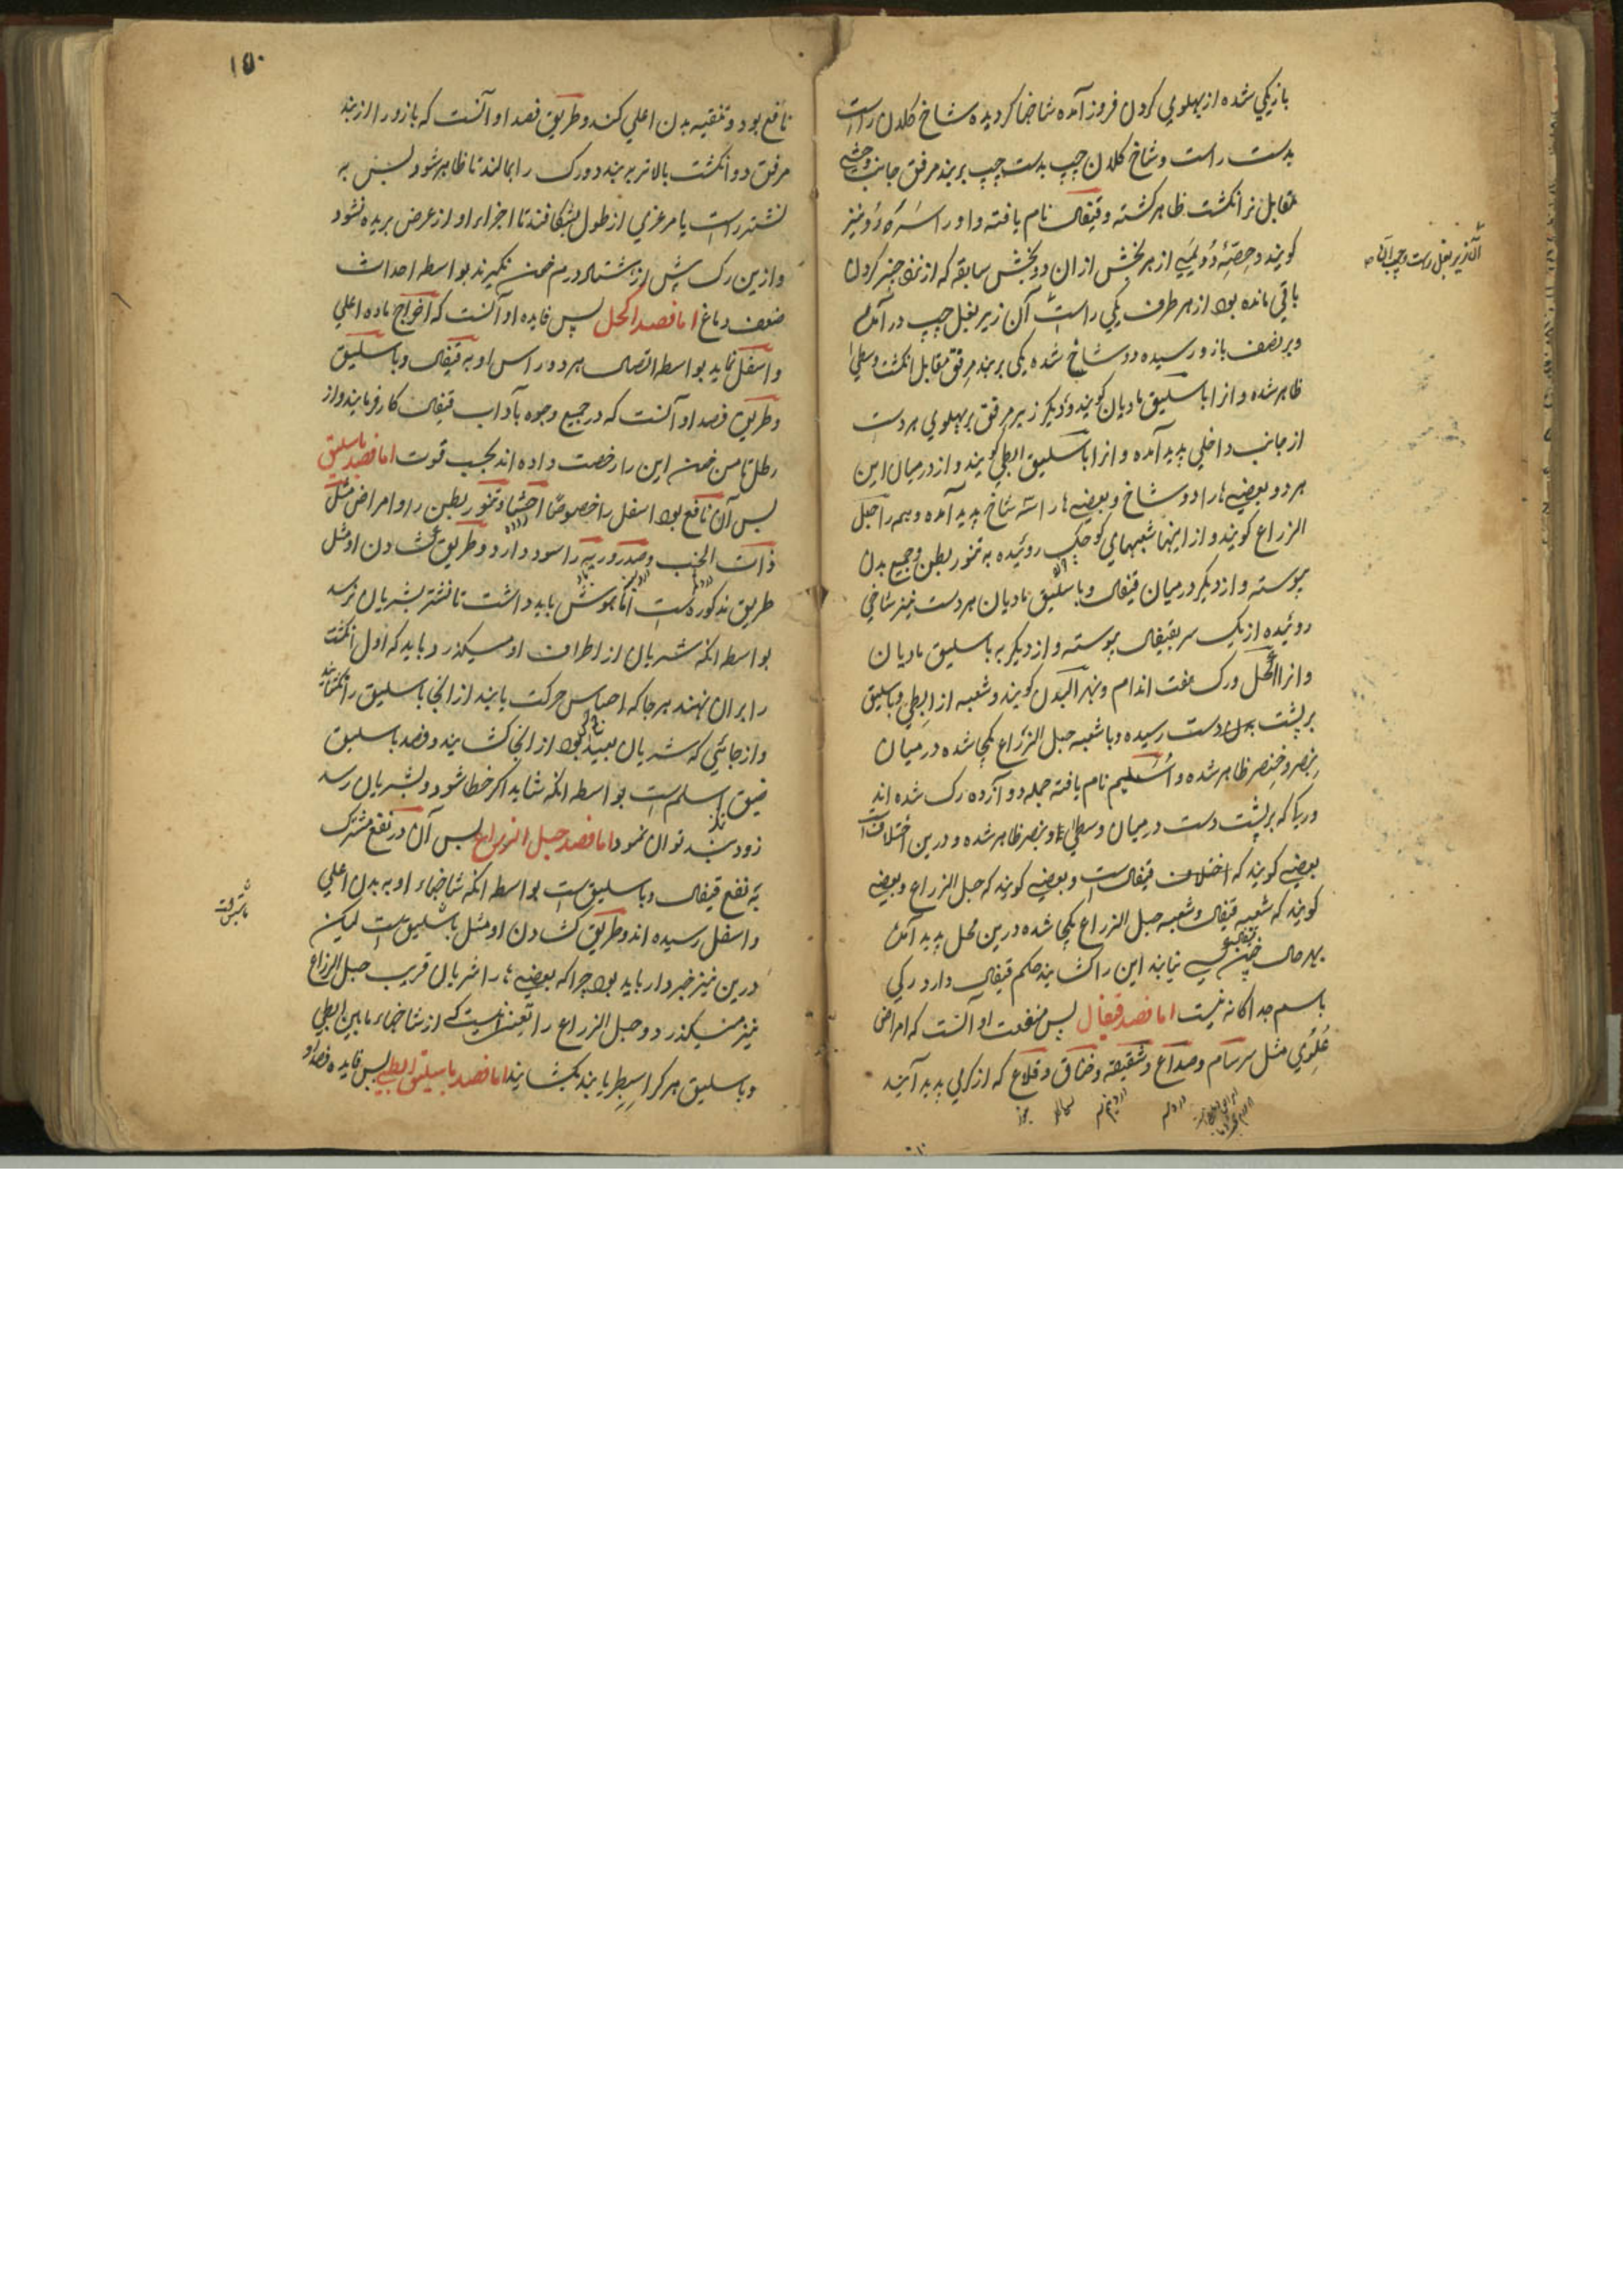 باز یکی شده از پهلوی کردن فروز آمده شاخها کردیده شاخ کلان راست
بدست راست و شاخ کلان چپ بدست چپ بربند مرفق جانب وحشی
مقابل نر انکشت ظاهر کشته و قیفال نام یافته و او را سره رو نیز
کویند و حصهٔ دویمی از هر بخش از ان دو بخش سابقه که از نزد چنبر کردن
باقی مانده بود از هر طرف یکی راست آن زیر بغل چپ در آمده
و بر نصف بازو رسیده دو شاخ شده یکی بربند مرفق مقابل انکشت وسطی
ظاهر شده و از ا باسلیق مادیان کویند و دیکر زیر مرفق بر پهلوی هر دست
از جانب داخلی پدید آمده و انرا باسلیق ابطی کویند و از درمیان این
هر دو بعضی ها را دو شاخ و بعضی ها را سه شاخ پدید آمده و همه را حبل
الزراع کویند و از اینها شعبهای کوچک روئیده به تنور بطن و جمیع بدن
پیوسته و از دیکر درمیان قیفال و باسلیق مادیان هر دست نیز شاخی
روئیده از یک سر بقیفال پیوسته و از دیکر به باسلیق مادیان
و انرا اکحل و رک هفت اندام و نهر البدن کویند و شعبه از ابطی و باسلیق
بر پشت هر دست رسیده و با شعبه حبل الزراع یکجا شده درمیان
بنصر و خنصر ظاهر شده و اسلیم نام یافته جمله دوازده رک شده اند
و ریکا که بر پشت دست درمیان وسطی و بنصر ظاهر شده و درین اختلافست
بعضی کویند که اختلاف قیفالست و بعضی کویند که حبل الزراع و بعضی
کویند که شعبه قیفال و شعبه حبل الزراع یکجا شده درین محل پدید آمده
بهر حال چنین می نمایند این را کشایند حکم قیفال دارد رکی
باسم جداکانه نیست اما فصد قیفال پس منفعت او آنست که امراض
علوی مثل سرسام و صداع و شقیقه و خناق و قلاع که از کرمی پدید آیند
آن زیر بغل راست و چپ
۱۵۰
نافع بود و تنقیه بدن اعلی کند و طریق فصد او آنست که بازو را از بند
مرفق دو انکشت بالاتر ببندد و رک را بمالند تا ظاهر شود پس به
نشتر راست یا مرغزی از طول بشکافند تا اجزاء او از عرض بریده نشود
و ازین رک پیش از هشتاد درم خون نکیرند بواسطه احداث
ضعف دماغ اما فصد اکحل پس فایده او آنست که اخراج ماده اعلی
و اسفل نماید بواسطه اتصال هر دو راس او به قیفال و باسلیق
و طریق فصد او آنست که در جمیع وجوه بآداب قیفال کار فرمایند و از
رطل تا من خون این را رخصت داده اند بحسب قوت اما فصد باسلیق
پس آن نافع بود اسفل را خصوصا احشا و تنور بطن را و امراض مثل
ذات الجنب و صدر و ریه را سود دارد و طریق کشادن او مثل
طریق مذکور هست اما هوش باید داشت تا نشتر بشریان نرسد
بواسطه انکه شریان از اطراف او میکذرد و باید که اول انکشت
را بر ان نهند هر جا که احساس حرکت یابند از انجا باسلیق را نکشایند
و از جائیی که شریان بعید بود از انجا کشایند و فصد باسلیق
ضیق اسلم است بواسطه انکه شاید اکر خطا شود و بشریان رسد
زود بند توان نمود اما فصد حبل الزراع پس آن در نفع مشترک
به نفع قیفال و باسلیق است بواسطه انکه شاخهاء او به بدن اعلی
و اسفل رسیده اند و طریق کشادن او مثل باسلیق است لیکن
درین نیز خبردار باید بود چرا که بعضی ها را شریان قریب حبل الزراع
نیز میکذرد و حبل الزراع را تعین نیست که از شاخهاء مابین ابطی
و باسلیق هر کرا سطبر یابند بکشایند اما فصد باسلیق ابطی پس فایده فصد او